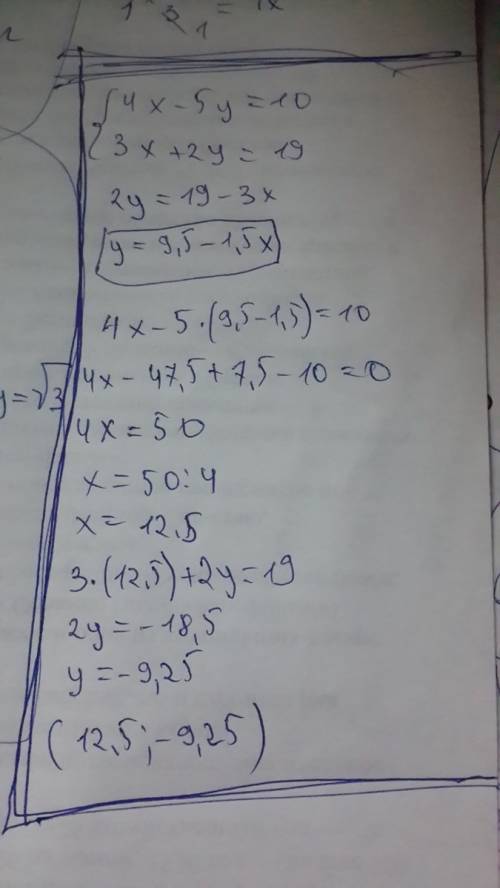 {4x-5y=10
3x+2y=19
2y=19-3x
y=9,5-1,5x
4x-5·(9,5-1,5)=10
4x-47,5+7,5-10=0
y=√3
4x=50
x=50:4
x=12,5
3·(12,5)+2y=19
2y=-18,5
y=-9,25
(12,5;-9,25)